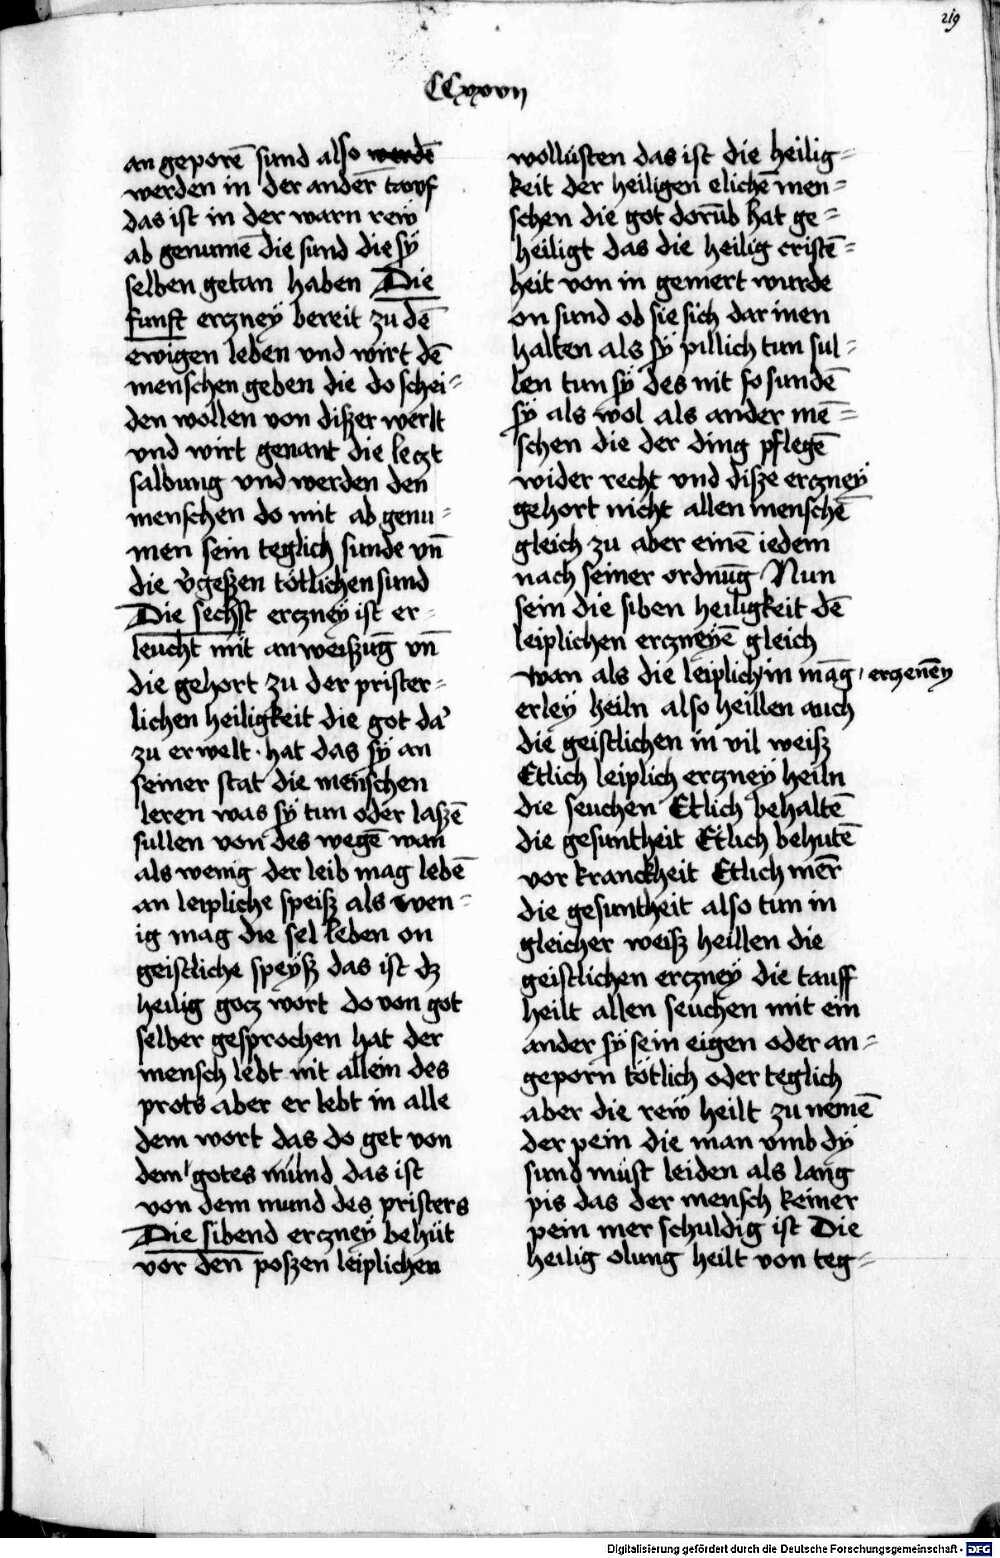 219
CCxxvii
an geporē sund also werdē
werden in der ander tawf
das ist in der warn rew
ab genumē die sund die sÿ
selben getan haben Die
funft erczneÿ bereit zu dē
ewigen leben vnd wirt dē
menschen geben die do schei=
den wollen von diszer werlt
vnd wirt genant die leczt
salbung vnd werden den
menschen do mit ab genu=
men sein teglich sunde vn̄
die v̓geszen tötlichen sund
Die sechst erczneÿ ist er=
leucht mit anweiszūg vn̄
die gehort zu der prister=
lichen heiligkeit die got da᾽
zu erwelt hat das sÿ an
seiner stat die menschen
leren was sÿ tun oder laszē
sullen von des wegē wan
als wenig der leib mag lebē
an leipliche speisz als wen=
ig mag die sel leben on
geistliche speÿsz das ist dz
heilig gocz wort do von got
selber gesprochen hat der
mensch lebt nit allein des
prots aber er lebt in alle
dem wort das do get von
dem gotes mund das ist
von dem mund des pristers
Die sibend erczneÿ behüt
vor den poszen leiplichen
wollüsten das ist die heilig=
keit der heiligen elichē men=
schen die got dorūb hat ge=
heiligt das die heilig cristē=
heit von in gemert wurde
on sund ob sie sich dar inen
halten als sÿ pillich tun sul=
len tun sÿ des nit so sundē
sÿ als wol als ander mē=
schen die der ding pflegē
wider recht vnd disze erczneÿ
gehort nicht allen menschē
gleich zu aber einē iedem
nach seiner ordnūg Nun
sein die siben heiligkeit dē
leiplichen erczneÿē gleich
wan als die leiplichin māg erczenēy
erley heiln also heillen auch
die geistlichen in vil weisz
Etlich leiplich erczneÿ heiln
die seuchen Etlich behaltē
die gesuntheit Etlich behutē
vor kranckheit Etlich mēr
die gesuntheit also tun in
gleicher weisz heillen die
geistlichen erczneÿ die tauff
heilt allen seuchen mit ein
ander sÿ sein eigen oder an=
geporn tötlich oder teglich
aber die rew heilt zu nemē
der pein die man vmb dÿ
sund müst leiden als lang
pis das der mensch keiner
pein mer schuldig ist Die
heilig olung heilt von teg=
Digitalisierung gefördert durch die Deutsche Forschungsgemeinschaft - DFG